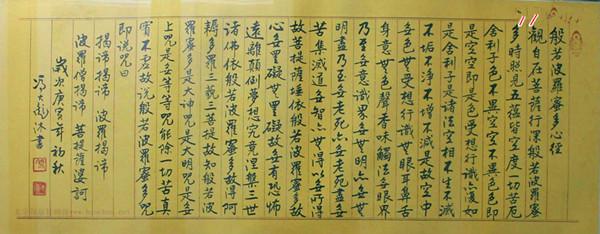 般若波羅蜜多心經
觀自在菩薩行深般若波羅蜜
多時照見五蘊皆空度一切苦厄
舍利子色不異空空不異色色即
是空空即是色受想行識亦復如
是舍利子是諸法空相不生不滅
不垢不淨不增不減是故空中
無色無受想行識無眼耳鼻舌
身意無色聲香味觸法無眼界
乃至無意識界無無明亦無無
明盡乃至無老死亦無老死盡無
苦集滅道無智亦無得以無所得
故菩提薩埵依般若波羅蜜多
故心無罣礙無罣礙故無有恐怖
遠離顛倒夢想究竟涅槃三世
諸佛依般若波羅蜜多故得阿
耨多羅三藐三菩提故知般若波
羅蜜多是大神咒是大明咒是無
上咒是無等等咒能除一切苦真
實不虛故說般若波羅蜜多咒
即說咒曰
揭諦揭諦 波羅揭諦
波羅僧揭諦 菩提薩婆訶
歲次庚寅年初秋
書